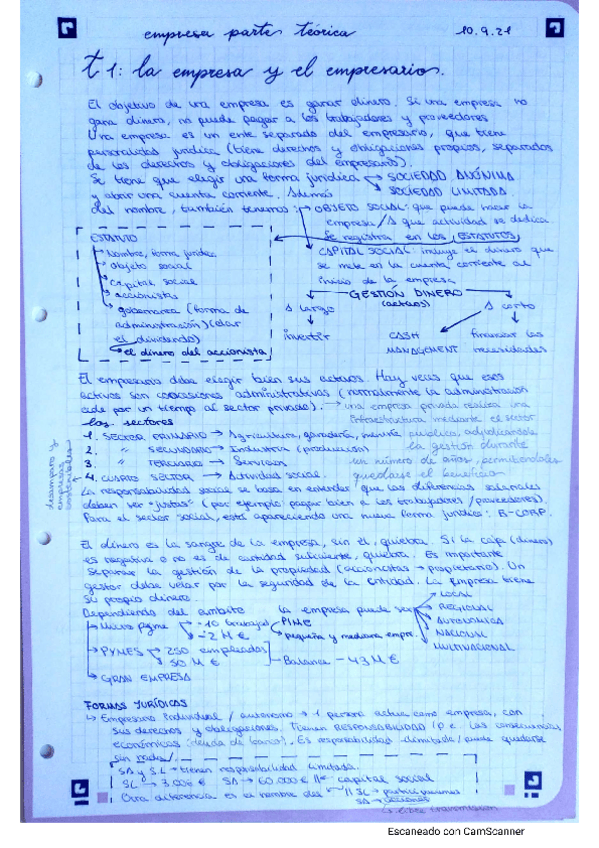 empresa parte teórica 10.9.21
t1: la empresa y el empresario.
El objetivo de una empresa es ganar dinero. Si una empresa no
gana dinero, no puede pagar a los trabajadores y proveedores
Una empresa es un ente separado del empresario, que tiene
personalidad jurídica (tiene derechos y obligaciones propios, separados
de los derechos y obligaciones del empresario).
Se tiene que elegir una forma jurídica → SOCIEDAD ANÓNIMA
y abrir una cuenta corriente. Además → SOCIEDAD LIMITADA.
del nombre, también tenemos: → OBJETO SOCIAL: que puede hacer la
empresa / A que actividad se dedica.
Se registra en los ESTATUTOS
ESTATUTO
→ Nombre, forma
→ objeto social
→ capital social
→ accionistas
→ gobernanza (forma de
administración) (
el dividendo)
→ el dinero del accionista
→ CAPITAL SOCIAL: incluye el dinero que
se mete en la cuenta corriente al
inicio de la empresa
GESTIÓN DINERO
(activos)
A largo A corto
invertir CASH financiar las
MANAGEMENT necesidades
El empresario debe elegir bien sus activos. Hay veces que esos
activos son concesiones administrativas (normalmente la administración
cede por un tiempo al sector privado). → una empresa privada realiza una
los sectores infraestructura mediante el sector
1. SECTOR PRIMARIO → Agricultura, ganadería, minería público, adjudicándole
2. " SECUNDARIO → Industria (producción) la gestión durante
3. " TERCIARIO → Servicios un número de años, permitiéndoles
4. CUARTO SECTOR → Actividad social. quedarse el beneficio
desamparo y
empresas
sostenibles
La responsabilidad social se basa en entender que las diferencias salariales
deben ser "justas" (por ejemplo pagar bien a los trabajadores / proveedores).
Para el sector social, está apareciendo una nueva forma jurídica: B-CORP.
El dinero es la sangre de la empresa, sin él, quiebra. Si la caja (dinero)
es negativa o no es de cantidad suficiente, quiebra. Es importante
separar la gestión de la propiedad (accionistas → propietario). Un
gestor debe velar por la seguridad de la entidad. La empresa tiene
su propio dinero.
Dependiendo del ámbito la empresa puede ser → LOCAL
→ Micro pyme → -10 trabajad → PIME → REGIONAL
→ -2 M € pequeña y mediana empr. → AUTONÓMICA
→ PYMES → 250 empleados → NACIONAL
→ 50 M € Balance - 43 M € → MULTINACIONAL
→ GRAN EMPRESA
FORMAS JURÍDICAS
→ Empresario Individual / autónomo → 1 persona actúa como empresa, con
sus derechos y obligaciones. Tienen RESPONSABILIDAD i.e. las consecuencias
económicas (deuda de banco). Es responsabilidad ilimitada / puede quedarse
sin nada /
SA y SL → tienen responsabilidad limitada.
SL → 3.000 € SA → 60.000 € // capital social
Otra diferencia es el nombre del " // SL → participaciones
SA → acciones
Escaneado con CamScanner